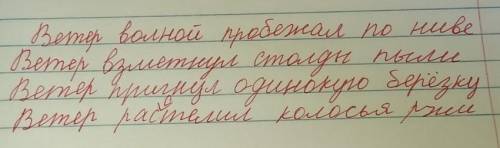 Ветер волной пробежал по ниве
Ветер взметнул столды пыли
Ветер пригнул одинокую берёзку
Ветер растелил колосья ржи